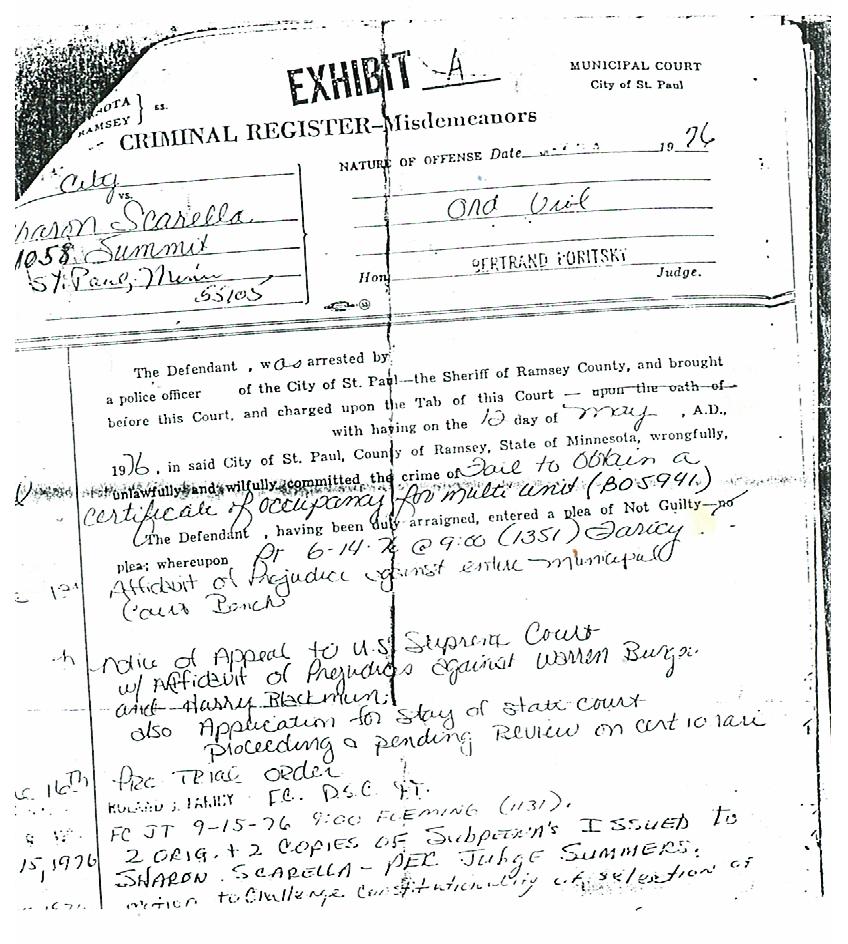 EXHIBIT A
MUNICIPAL COURT
City of St. Paul
OTA
RAMSEY } ss.
CRIMINAL REGISTER—Misdemeanors
NATURE OF OFFENSE Date 19 76
City
vs.
haron Scarella
1058 Summit
St. Paul, Minn
55105
Ord Viol
BERTRAND PORITSKY
Hon Judge.
The Defendant , was arrested by
a police officer of the City of St. Paul—the Sheriff of Ramsey County, and brought
before this Court, and charged upon the Tab of this Court — upon the oath of
with having on the 10 day of May , A.D.,
1976, in said City of St. Paul, County of Ramsey, State of Minnesota, wrongfully,
unlawfully and wilfully committed the crime of Fail to Obtain a
certificate of occupancy for multi unit (BO5941)
The Defendant , having been duly arraigned, entered a plea of Not Guilty—no
plea; whereupon Pt 6-14-76 @ 9:00 (1351) Faricy
Affidavit of Prejudice against entire municipal
Court Bench
h Notice of Appeal to U.S. Supreme Court
w/ Affidavit of Prejudice against Warren Burger
and Harry Blackmun;
also Application for Stay of State court
proceeding & pending Review on certiorari
16th Pre TRIAL ORDER
ROLAND J. FARICY FC. DSC
FC JT 9-15-76 9:00 FLEMING (1131).
15, 1976 2 ORIG. + 2 COPIES OF Subpoena's ISSUED to
SHARON SCARELLA - PER Judge SUMMERS.
motion to Challenge Constitutionality of selection of